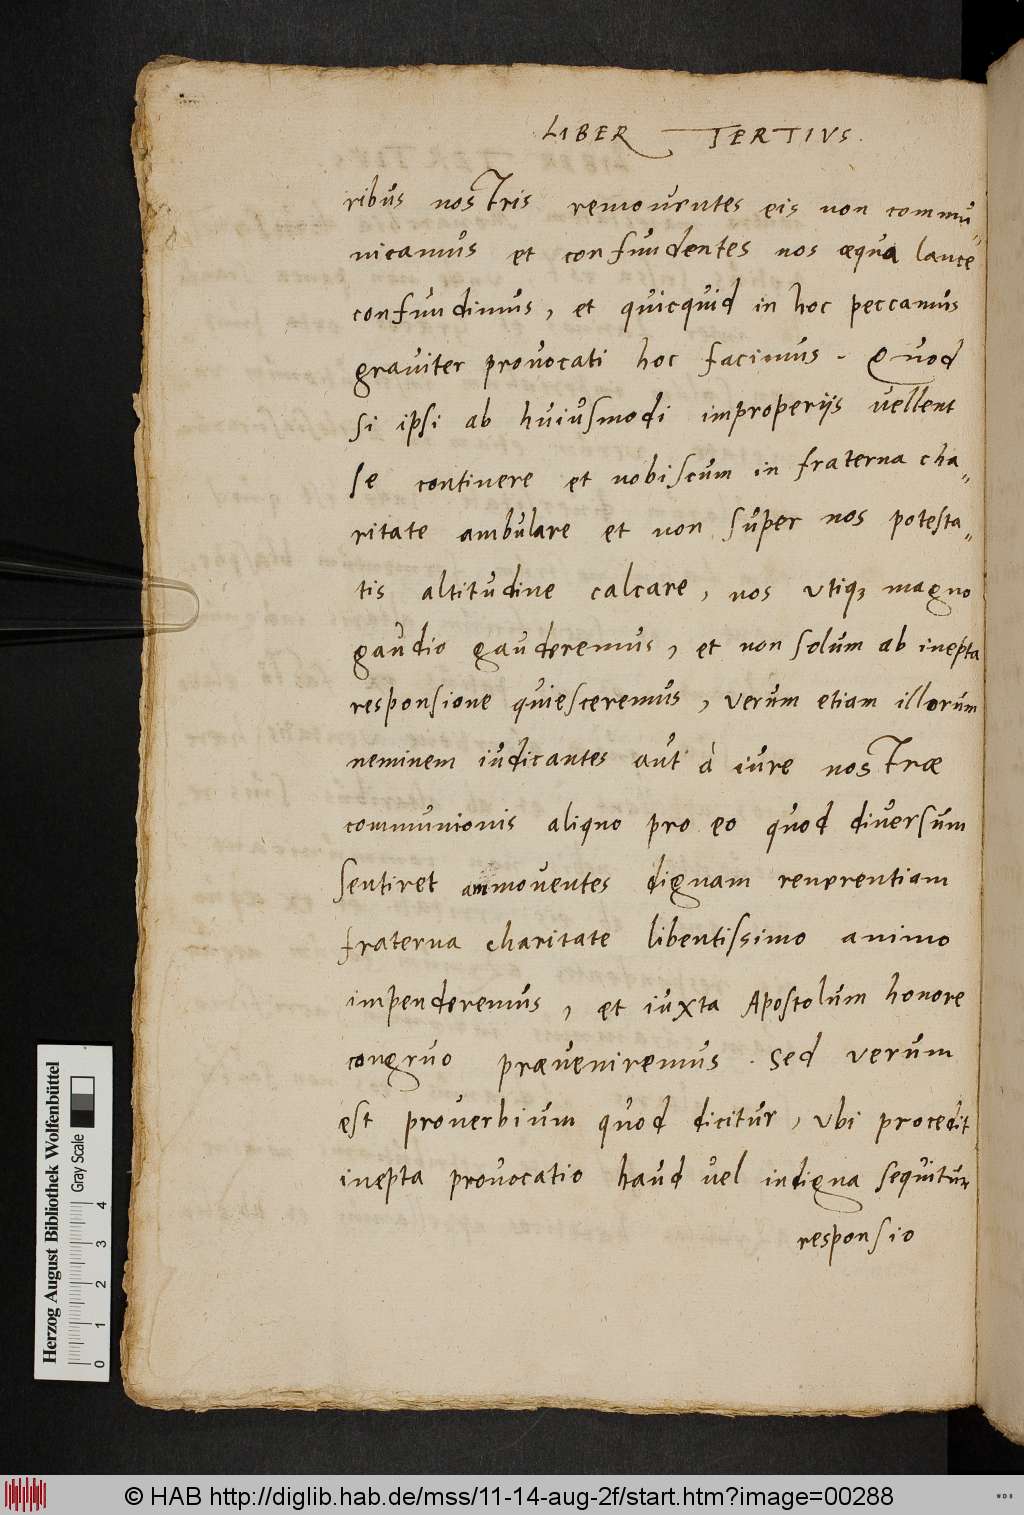 LIBER TERTIVS.
ribus nostris removentes eis non commu„
nicamus et confundentes nos æqua lance
confundimus, et quicquid in hoc peccamus
graviter provocati hoc facimus. Quod
si ipsi ab huiusmodi improperijs vellent
se continere et nobiscum in fraterna cha„
ritate ambulare et non super nos potesta„
tis altitudine calcare, nos utiq; magno
gaudio gauderemus, et non solum ab inepta
responsione quiesceremus, verum etiam illorum
neminem iudicantes aut à iure nostræ
communionis aliquo pro eo quod diversum
sentiret ammoventes dignam reverentiam
fraterna charitate libentissimo animo
impenderemus, et iuxta Apostolum honore
congruo præveniremus. Sed verum
est proverbium quod dicitur, ubi procedit
inepta provocatio haud vel indigna sequitur
responsio
Herzog August Bibliothek Wolfenbüttel
Gray Scale
0 1 2 3 4
© HAB http://diglib.hab.de/mss/11-14-aug-2f/start.htm?image=00288